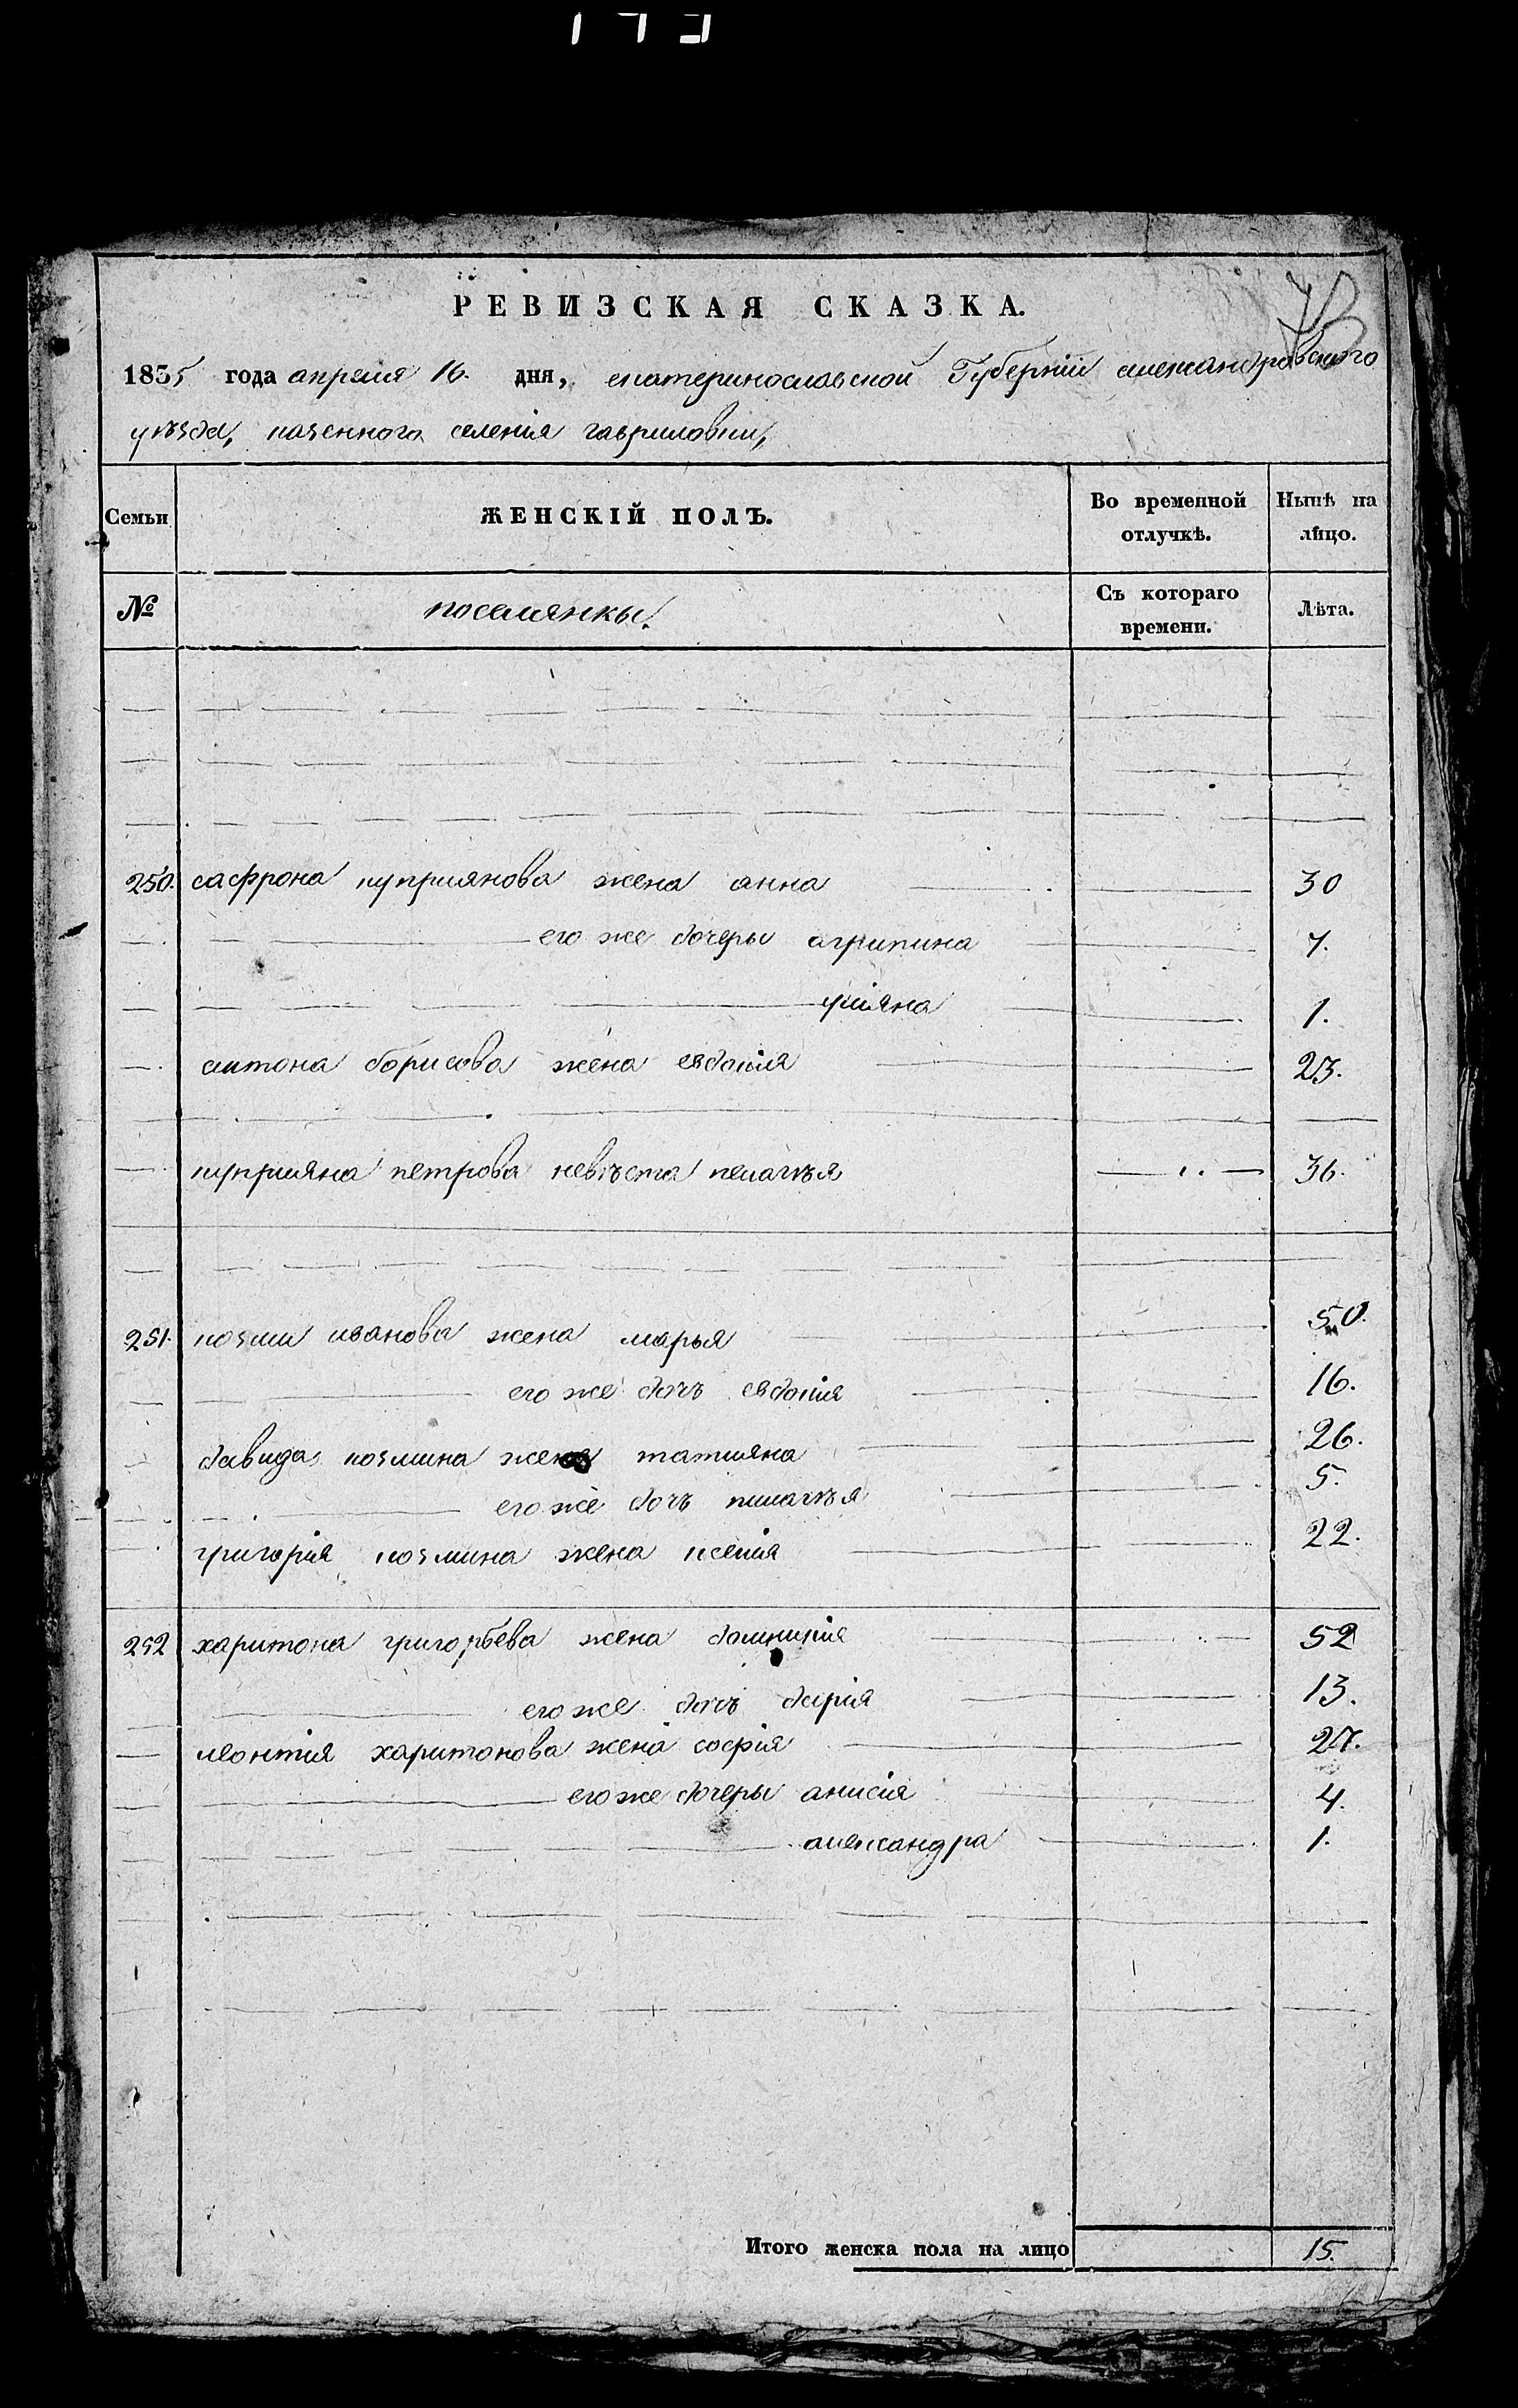 РЕВИЗСКАЯ СКАЗКА.
1835 года апреля 16. дня, екатеринославской Губерніи александровского
уѣзда, казенного селенія гавриловки,
Семьи ЖЕНСКІЙ ПОЛЪ. Во временной отлучкѣ. Нынѣ на лицо.
№ поселянкы. Съ котораго времени. Лѣта.
250. сафрона куприянова жена анна 30
его же дочеры агрипина 7.
улияна 1.
антона борисова жена евдокія 23.
куприяна петрова невѣста пелагѣя 36.
251. козми иванова жена марья 50.
его же дочъ евдокія 16.
давида козмина жена татияна 26.
его же дочъ пилагѣя 5.
григорія козмина жена ксенія 22.
252 харитона григорьева жена домникія 52
его же дочъ дарія 13.
леонтія харитонова жена софія 27.
его же дочеры анисія 4.
александра 1.
Итого женска пола на лицо 15.